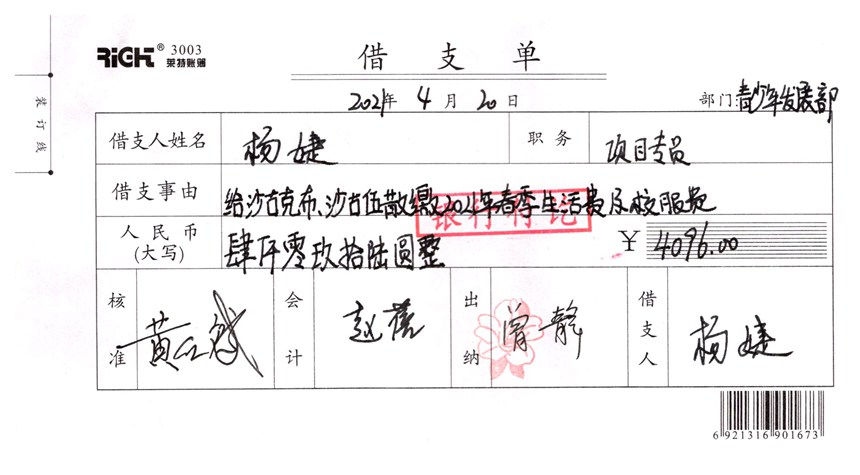 RIGHT® 3003
莱特账簿
借支单
2021年 4月 20日
部门:青少年发展部
装订线
借支人姓名 杨婕 职务 项目专员
借支事由 给沙古克布、沙古伍散缴2021年春季生活费及校服费
银行付讫
人民币(大写) 肆仟零玖拾陆圆整 ¥ 4096.00
核准 会计 赵蓓 出纳 曾静 借支人 杨婕
6 921316 901673